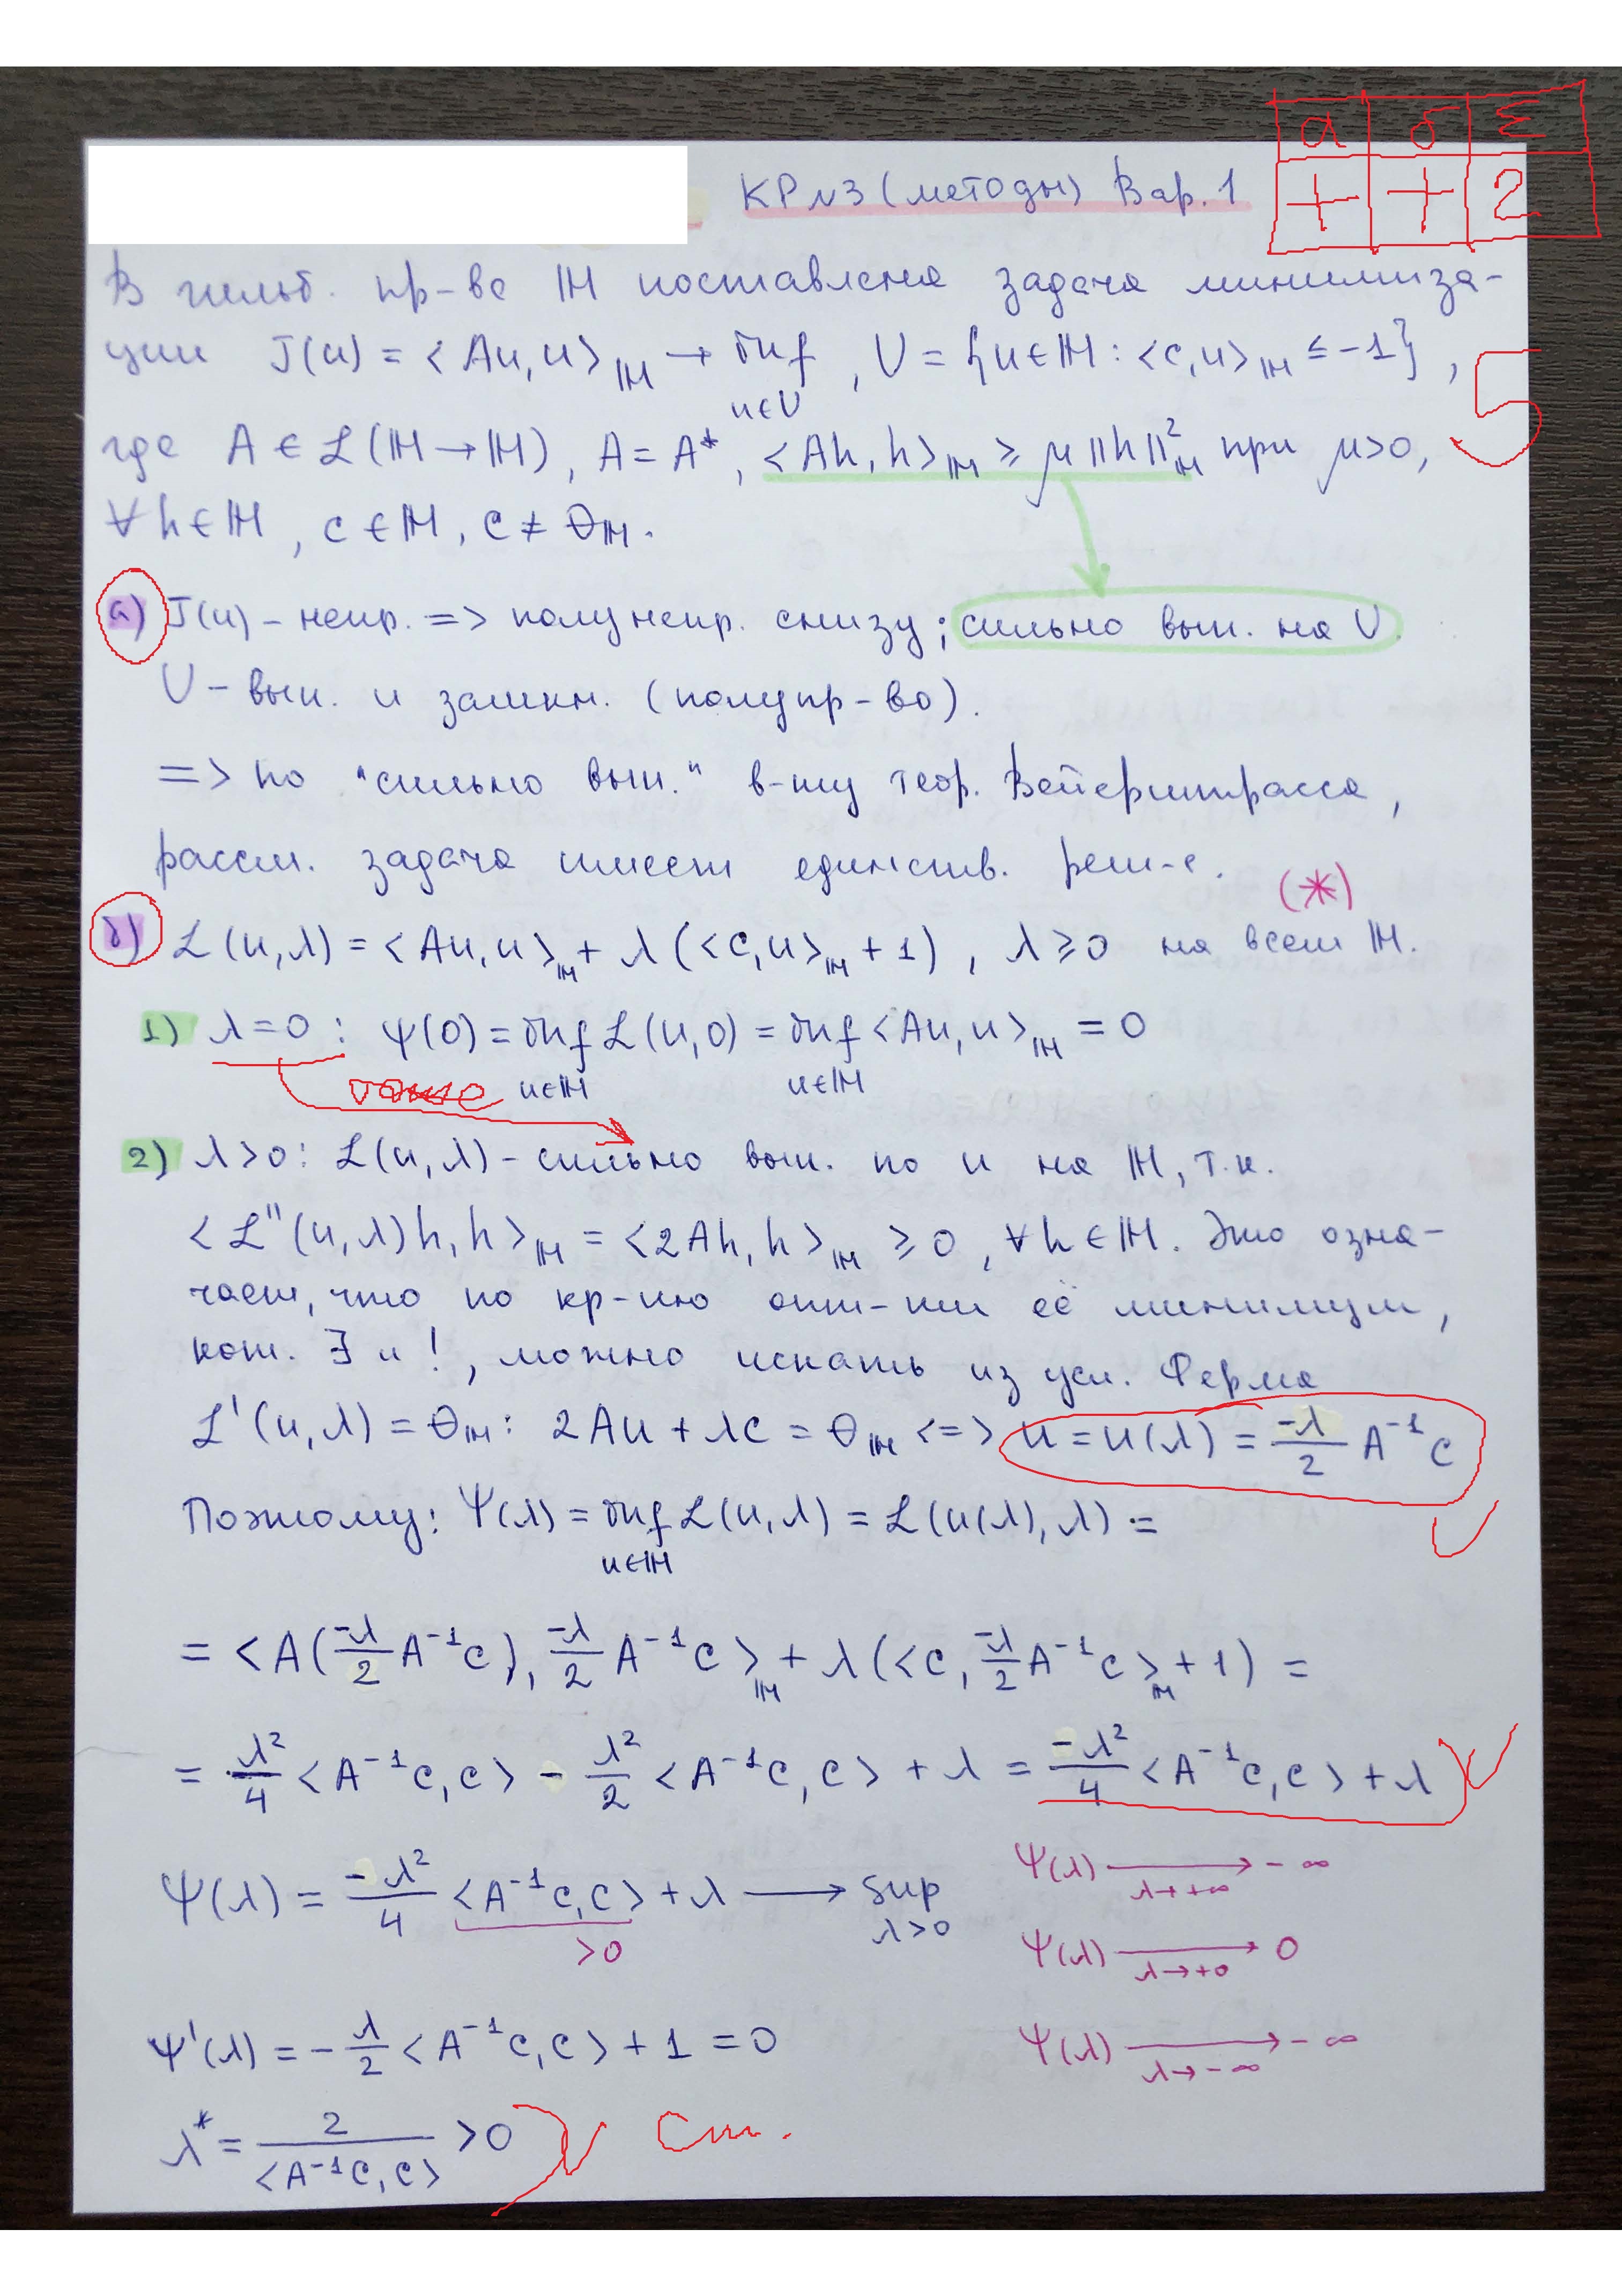 КР №3 (методы) Вар. 1
а б Σ
+ + 2
В гильб. пр-ве ℍ поставлена задача минимиза-
ции J(u) = <Au, u>_ℍ → inf_{u∈U}, U = {u∈ℍ : <c,u>_ℍ ≤ -1},
5
где A ∈ ℒ(ℍ→ℍ), A = A*, <Ah, h>_ℍ ≥ μ‖h‖²_ℍ при μ>0,
∀h∈ℍ, c∈ℍ, c ≠ θ_ℍ.
а) J(u) - непр. => полунепр. снизу; сильно вып. на U.
U - вып. и замкн. (полупр-во).
=> по "сильно вып." в-ту теор. Вейерштрасса,
рассм. задача имеет единств. реш-е.
(*)
б) ℒ(u,λ) = <Au,u>_ℍ + λ(<c,u>_ℍ + 1), λ ≥ 0 на всем ℍ.
1) λ=0 : ψ(0) = inf_{u∈ℍ} ℒ(u,0) = inf_{u∈ℍ} <Au,u>_ℍ = 0
2) λ>0 : ℒ(u,λ) - сильно вып. по u на ℍ, т.к.
<ℒ''(u,λ)h,h>_ℍ = <2Ah,h>_ℍ ≥ 0, ∀h∈ℍ. Это озна-
чает, что по кр-ию опт-ти её минимум,
кот. ∃ и !, можно искать из усл. Ферма
ℒ'(u,λ) = θ_ℍ : 2Au + λc = θ_ℍ <=> u = u(λ) = -λ/2 A⁻¹c
Поэтому: ψ(λ) = inf_{u∈ℍ} ℒ(u,λ) = ℒ(u(λ),λ) =
= <A(-λ/2 A⁻¹c), -λ/2 A⁻¹c>_ℍ + λ(<c, -λ/2 A⁻¹c>_ℍ + 1) =
= λ²/4 <A⁻¹c,c> - λ²/2 <A⁻¹c,c> + λ = -λ²/4 <A⁻¹c,c> + λ
ψ(λ) = -λ²/4 <A⁻¹c,c> + λ → sup_{λ>0}
>0
ψ(λ) →_{λ→+∞} -∞
ψ(λ) →_{λ→+0} 0
ψ(λ) →_{λ→-∞} -∞
ψ'(λ) = -λ/2 <A⁻¹c,c> + 1 = 0
λ* = 2/<A⁻¹c,c> > 0
См.